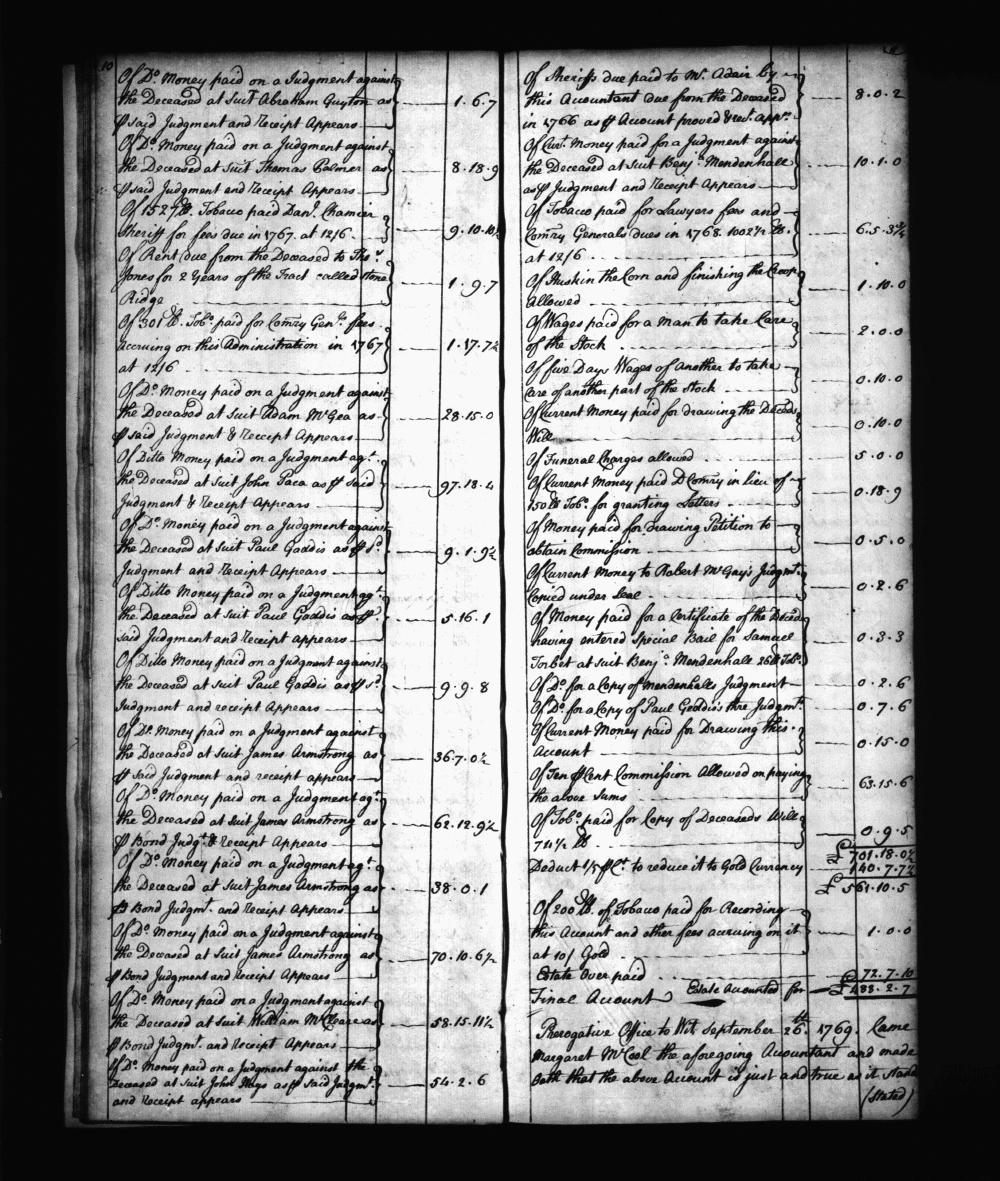 10
Of Do. Money paid on a Judgment against
the Deceased at Suit Abraham Guyton as 1.6.7
⅌ said Judgment and Receipt Appears
Of Do. Money paid on a Judgment against
the Deceased at Suit Thomas Palmer as 8.18.9
⅌ said Judgment and Receipt Appears
Of 1527 lb. Tobacco paid Danl. Chamier
Sheriff for fees due in 1767. at 12/6 9.10.10½
Of Rent due from the Deceased to Thos.
Jones for 2 Years of the Tract called Stone 1.9.7
Ridge
Of 301 lb. Tobo. paid for Comry Genls. fees
accruing on this Administration in 1767 1.17.7½
at 12/6
Of Do. Money paid on a Judgment against
the Deceased at Suit Adam McGea as 28.15.0
⅌ said Judgment & Receipt Appears
Of Ditto Money paid on a Judgment agt.
the Deceased at Suit John Paca as ⅌ said 97.18.4
Judgment & Receipt Appears
Of Do. Money paid on a Judgment against
the Deceased at Suit Paul Gaddis as ⅌ sd. 9.1.9½
Judgment and Receipt Appears
Of Ditto Money paid on a Judgment agt.
the Deceased at Suit Paul Gaddis as ⅌ 5.16.1
said Judgment and Receipt appears
Of Ditto Money paid on a Judgment against
the Deceased at Suit Paul Gaddis as ⅌ sd. 9.9.8
Judgment and receipt Appears
Of Do. Money paid on a Judgment against
the Deceased at Suit James Armstrong as 36.7.0½
⅌ said Judgment and receipt appears
Of Do. Money paid on a Judgment agt.
the Deceased at Suit James Armstrong as 62.12.9½
⅌ Bond Judgt. & Receipt Appears
Of Do. Money paid on a Judgment agt.
the Deceased at Suit James Armstrong as 38.0.1
⅌ Bond Judgmt. and Receipt Appears
Of Do. Money paid on a Judgment against
the Deceased at Suit James Armstrong as 70.10.6½
⅌ Bond Judgment and Receipt Appears
Of Do. Money paid on a Judgment against
the Deceased at Suit William McCleare as 58.15.11½
⅌ Bond Judgmt. and Receipt Appears
Of Do. Money paid on a Judgment against the
Deceased at Suit John Mays as ⅌ Said Judgmt. 54.2.6
and Receipt appears
Of Sheriffs due paid to Mr. Adair by
this Accountant due from the Deceased 8.0.2
in 1766 as ⅌ Account proved & rect. appr.
Of Curt. Money paid for a Judgment against
the Deceased at Suit Benja. Mendenhall 10.1.0
as ⅌ Judgment and Receipt Appears
Of Tobacco paid for Lawyers fees and
Comry Generals dues in 1768. 1002½ lb. 6.5.3¾
at 12/6
Of Huskin the Corn and finishing the Crop
allowed 1.10.0
Of Wages paid for a Man to take Care
of the Stock 2.0.0
Of five Days Wages of Another to take
Care of another part of the Stock 0.10.0
Of Current Money paid for drawing the Deceds.
Will 0.10.0
Of Funeral Charges allowed 5.0.0
Of Current Money paid D Comry in lieu of
150 lb Tobo. for granting Letters 0.18.9
Of Money paid for Drawing Petition to
obtain Commission 0.5.0
Of Current Money to Robert McGay's Judgmt.
Copied under Seal 0.2.6
Of Money paid for a Certificate of the Deceds
having entered Special Bail for Samuel 0.3.3
Torbet at Suit Benja. Mendenhall 26 lb Tobo.
Of Do. for a Copy of Mendenhalls Judgment 0.2.6
Of Do. for a Copy of Paul Geddis's thre Judgmt. 0.7.6
Of Current Money paid for Drawing this
Account 0.15.0
Of Ten ⅌ Cent Commission Allowed on paying
the above sums 63.15.6
Of Tobo. paid for Copy of Deceaseds Will
74½ lb 0.9.5
£ 701.18.0½
Deduct 1/5 ⅌ Ct. to reduce it to Gold Currency 140.7.7½
£ 561.10.5
Of 200 lb. of Tobacco paid for Recording
this Account and other fees accruing on it 1.0.0
at 10/ Gold
Estate Over paid £ 72.7.10
Final Account Estate Accounted for £ 488.2.7
Prerogative Office to Wit September 26th. 1769. Came
Margaret McCool the aforegoing Accountant and made
Oath that the above Account is just and true as it Stand
(Stated)